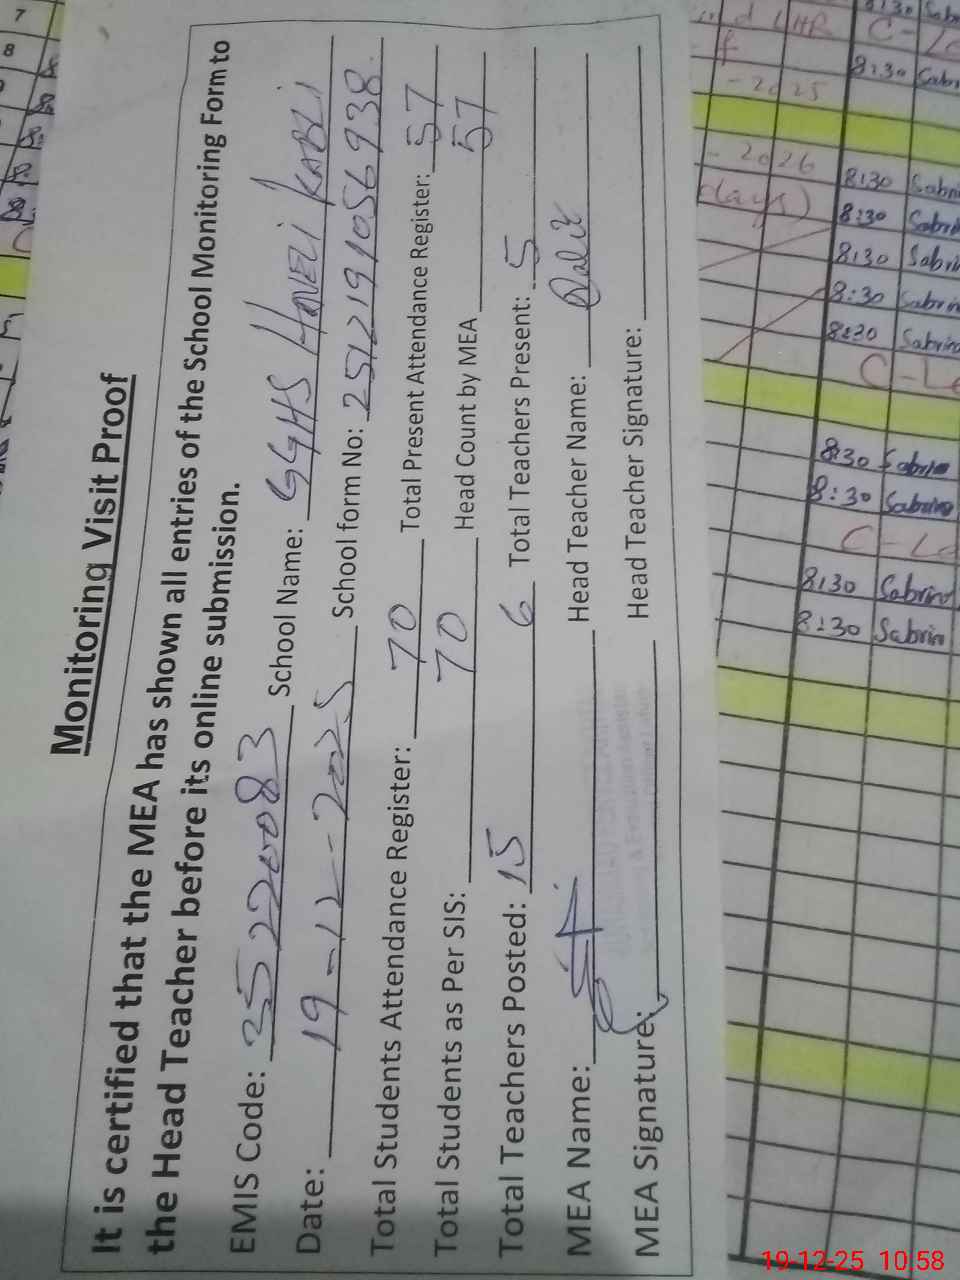 Monitoring Visit Proof
It is certified that the MEA has shown all entries of the School Monitoring Form to
the Head Teacher before its online submission.
EMIS Code: 35220083 School Name: GGHS HAVELI KABLI
Date: 19-12-2025 School form No: 2512191056938
Total Students Attendance Register: 70 Total Present Attendance Register: 57
Total Students as Per SIS: 70 Head Count by MEA 57
Total Teachers Posted: 15 6 Total Teachers Present: 5
MEA Name: Head Teacher Name:
MEA Signature: Head Teacher Signature:
7
8
8:30 Sab
C-Le
8:30 Sabr
- 2025
- 2026
8:30 Sabri
days)
8:30 Sabri
8:30 Sabri
8:30 Sabrin
8:30 Sabrin
C-Le
8:30 Sabrin
8:30 Sabrin
C-Le
8:30 Sabrin
8:30 Sabrin
19-12-25 10:58